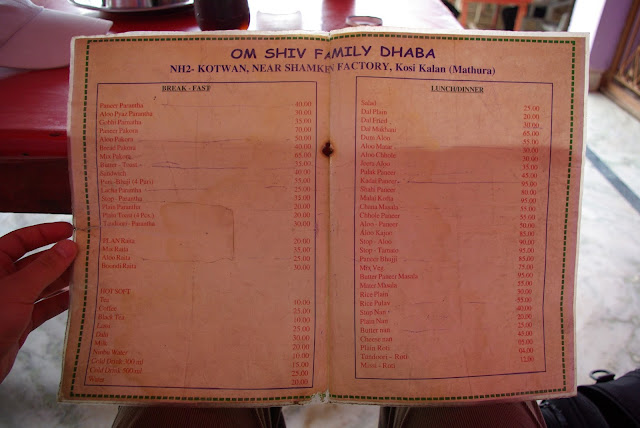 OM SHIV FAMILY DHABA
NH2- KOTWAN, NEAR SHAMKEN FACTORY, Kosi Kalan (Mathura)
BREAK - FAST
Paneer Parantha 40.00
Aloo Pyaz Parantha 30.00
Gobhi Parantha 35.00
Paneer Pakora 70.00
Aloo Pakora 50.00
Bread Pakora 40.00
Mix Pakora 65.00
Butter - Toast 30.00
Sandwich 40.00
Puri- Bhaji (4 Pars) 35.00
Lacha Parantha 25.00
Stap - Parantha 35.00
Plain Parantha 20.00
Plain Toast (4 Pcs.) 20.00
Tandoori - Parantha 30.00
PLAN Raita 20.00
Mix Raita 35.00
Aloo Raita 25.00
Boondi Raita 30.00
HOT SOFT
Tea 10.00
Coffee 25.00
Black Tea 10.00
Lassi 25.00
Dahi 30.00
Milk 20.00
Nimbu Water 10.00
Cold Drink 300 ml 15.00
Cold Drink 500 ml 25.00
Water 20.00
LUNCH/DINNER
Salad 25.00
Dal Plain 20.00
Dal Fried 30.00
Dal Makhani 65.00
Dum Aloo 55.00
Aloo Matar
Aloo Chhole
Jeera Aloo
Palak Paneer
Kadai Paneer 95.00
Shahi Paneer
Malai Kofta 95.00
Chana Masala
Chhole Paneer
Aloo - Paneer
Aloo Kajoo 85.00
Stop - Aloo 90.00
Stop - Tamato 95.00
Paneer Bhujji 85.00
Mix Veg.
Butter Paneer Masala 95.00
Mater Masala
Rice Plain
Rice Pulav
Stap Nan
Plain Nan
Butter nan 25.00
Cheese nan
Plain Roti
Tandoori - Roti 04.00
Missi - Roti 12.00